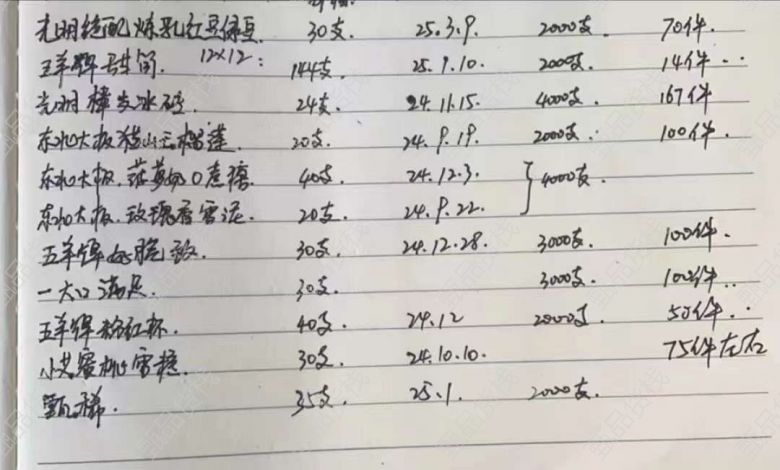 光明绝配炼乳红豆绿豆 30支. 25.3.9. 2000支 70件.
五羊牌 12×12: 144支. 25.9.10. 2000支. 14件..
光明棒 冰砖. 24支. 24.11.15. 4000支. 167件
东北大板猫山王榴莲 20支. 24.9.19. 2000支. 100件.
东北大板. 40支. 24.12.3. } 4000支.
东北大板.玫瑰香雪泥. 20支. 24.9.22.
五羊牌 脆 . 30支. 24.12.28. 3000支. 100件.
一大口满足. 30支. 3000支. 100件..
五羊牌粉红杯. 40支. 24.12 2000支 50件..
小 蜜桃雪糕. 30支. 24.10.10. 75件左右
甄稀. 35支. 25.1. 2000支.